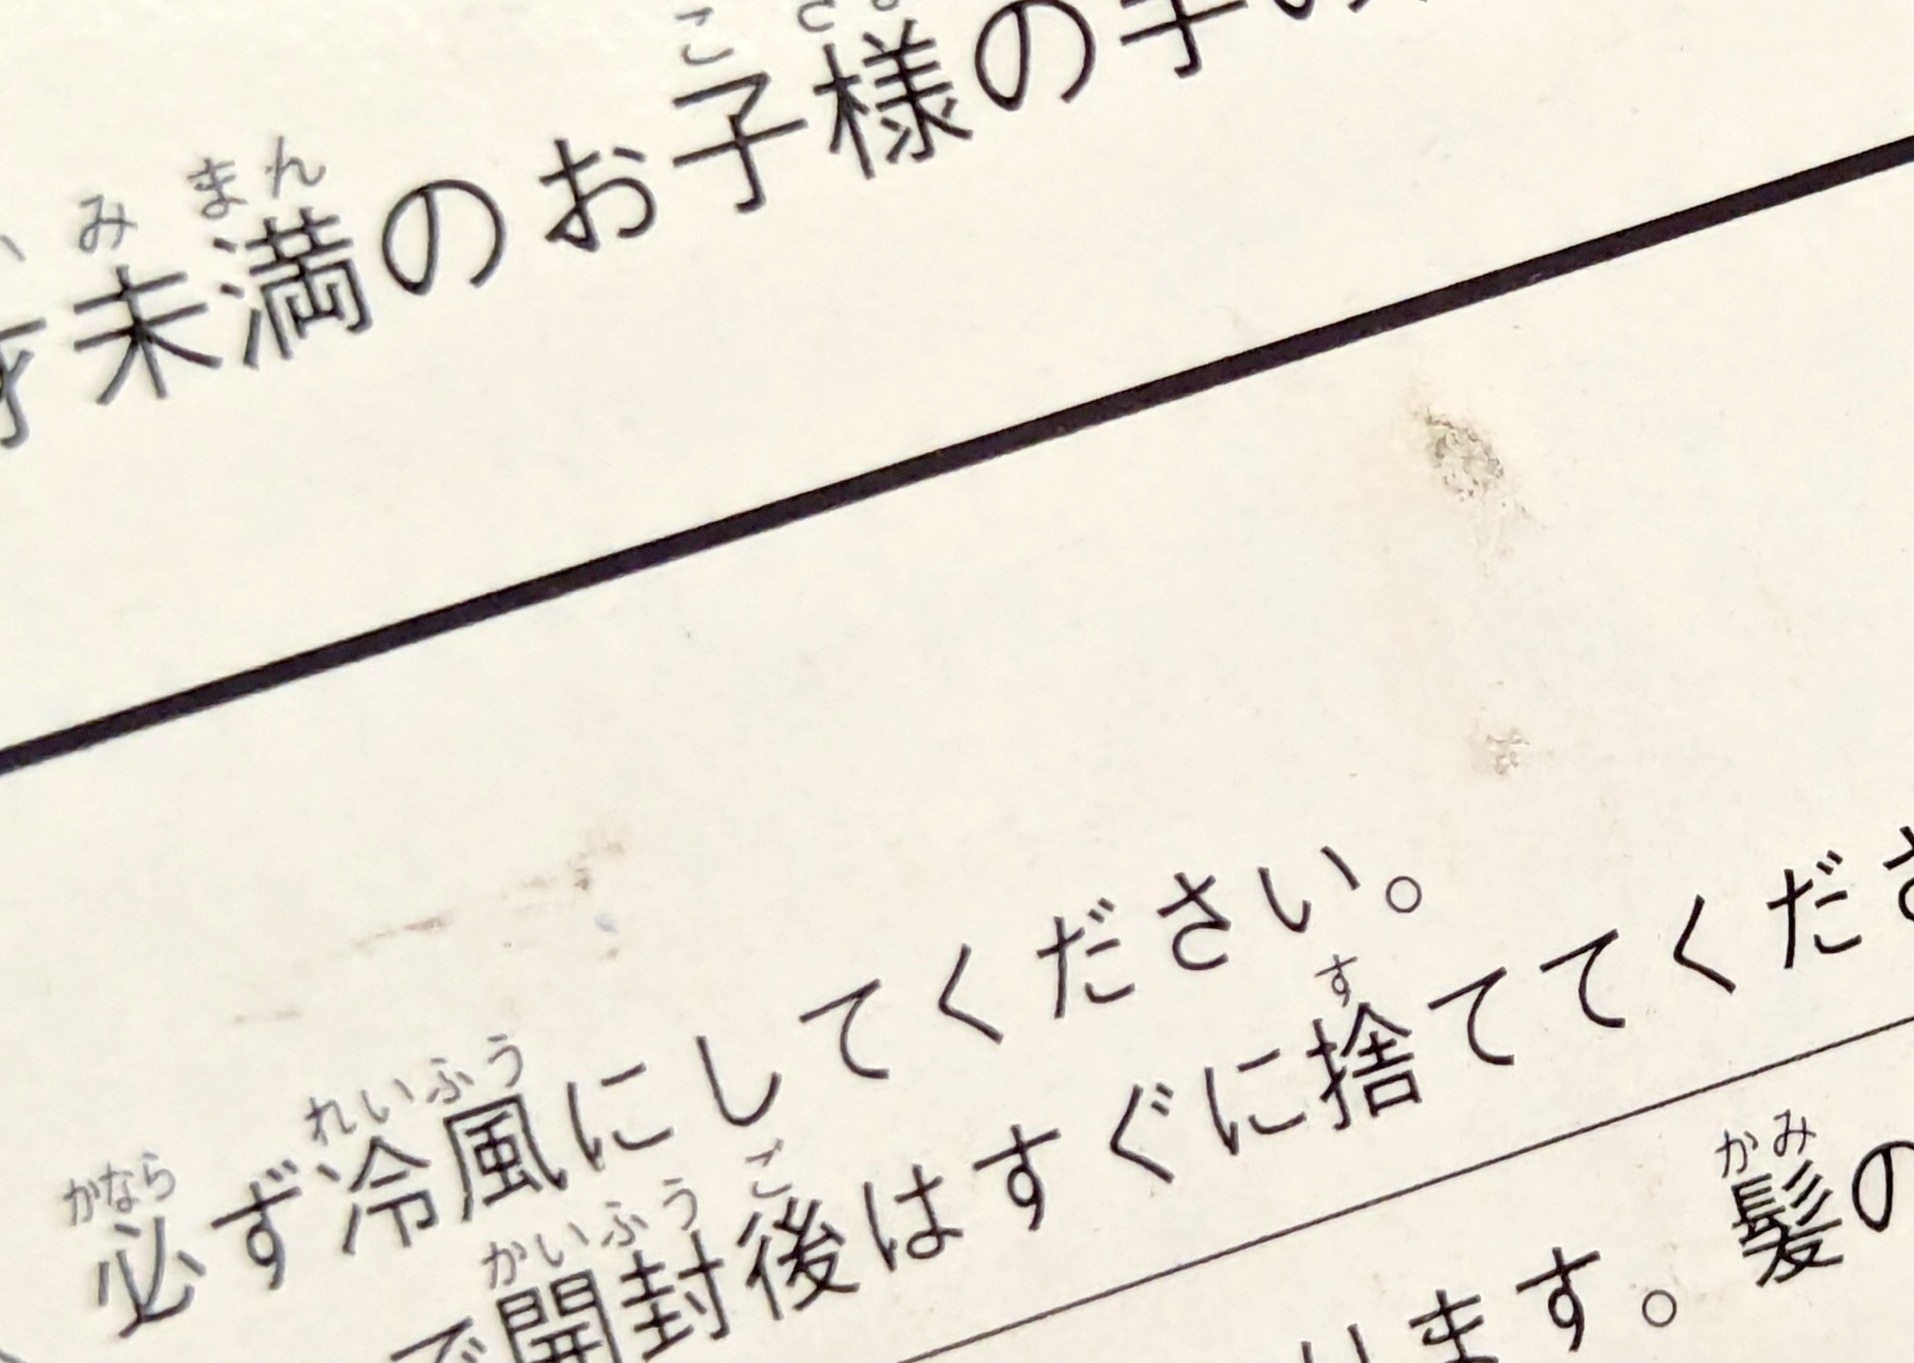 未満のお子様の手
必ず冷風にしてください。
で開封後はすぐに捨ててくださ
ります。髪の